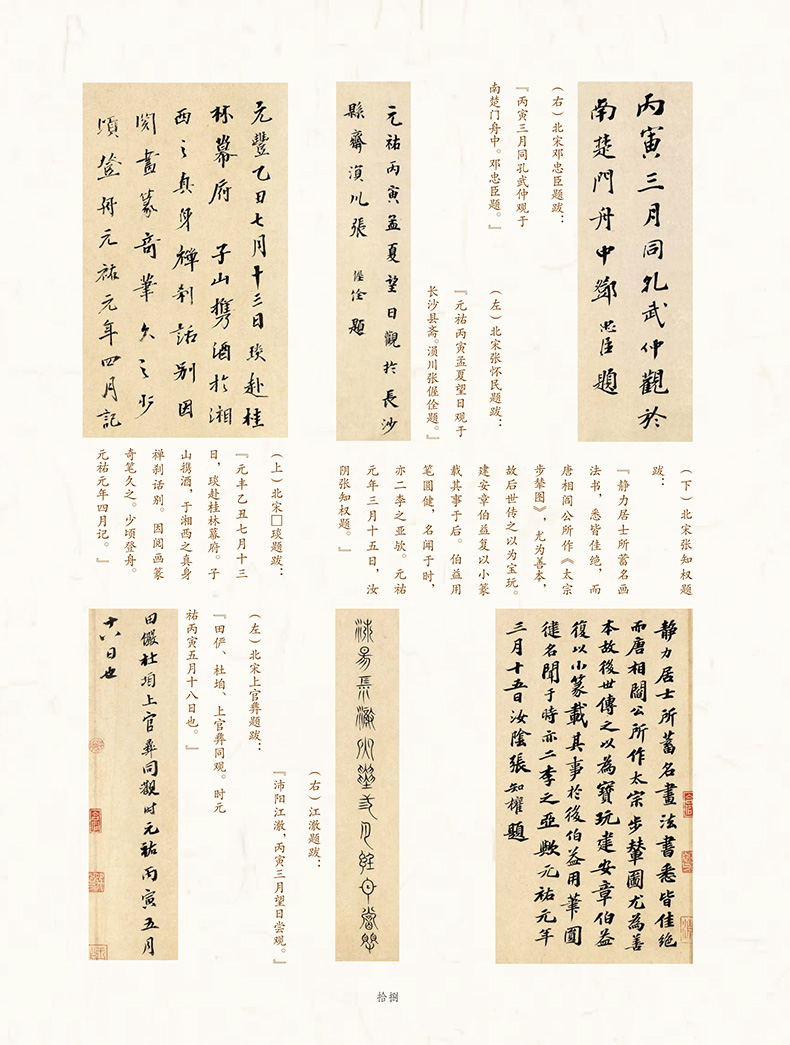 丙寅三月同孔武仲觀於
南楚門舟中鄧忠臣題
（右）北宋邓忠臣题跋：
『丙寅三月同孔武仲观于
南楚门舟中。邓忠臣题。』
元祐丙寅孟夏望日觀於長沙
縣齋湞川張偓佺題
（左）北宋张怀民题跋：
『元祐丙寅孟夏望日观于
长沙县斋。湨川张偓佺题。』
元豐乙丑七月十三日琰赴桂
林幕府子山携酒於湘
西之真身禅刹話别因
閱畫篆奇筆久之少
頃登舟元祐元年四月記
（上）北宋□琰题跋：
『元丰乙丑七月十三
日，琰赴桂林幕府。子
山携酒，于湘西之真身
禅刹话别。因阅画篆
奇笔久之。少顷登舟。
元祐元年四月记。』
（下）北宋张知权题
跋：
『静力居士所蓄名画
法书，悉皆佳绝，而
唐相阎公所作《太宗
步辇图》，尤为善本，
故后世传之以为宝玩。
建安章伯益复以小篆
载其事于后。伯益用
笔圆健，名闻于时，
亦二李之亚欤。元祐
元年三月十五日，汝
阴张知权题。』
静力居士所蓄名畫法書悉皆佳绝
而唐相閻公所作太宗步輦圖尤為善
本故後世傳之以為寶玩建安章伯益
復以小篆載其事於後伯益用筆圓
健名聞于時亦二李之亞歟元祐元年
三月十五日汝陰張知權題
（右）江澈题跋：
『沛阳江澈，丙寅三月望日尝观。』
（左）北宋上官彝题跋：
『田俨、杜垍、上官彝同观。时元
祐丙寅五月十八日也。』
田儼杜垍上官彝同觀时元祐丙寅五月
十八日也
拾捌